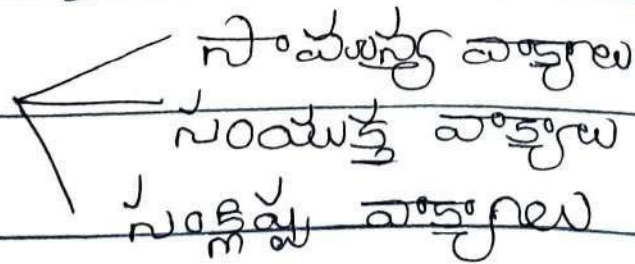 సామాన్య వాక్యాలు
సంయుక్త వాక్యాలు
సంక్లిష్ట వాక్యాలు